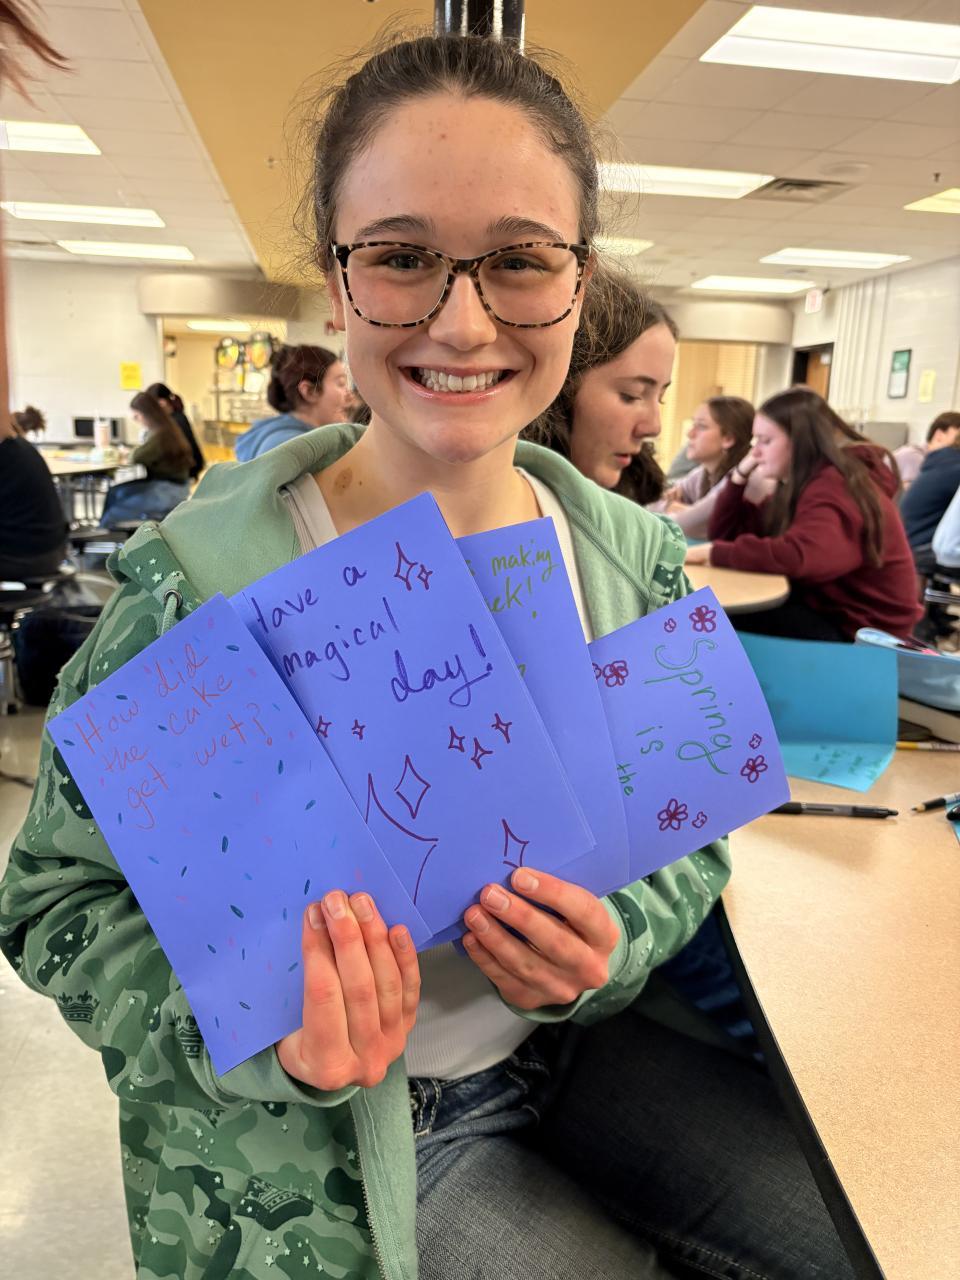 How did
the cake
get wet?
Have a
magical
day!
making
Spring
is the